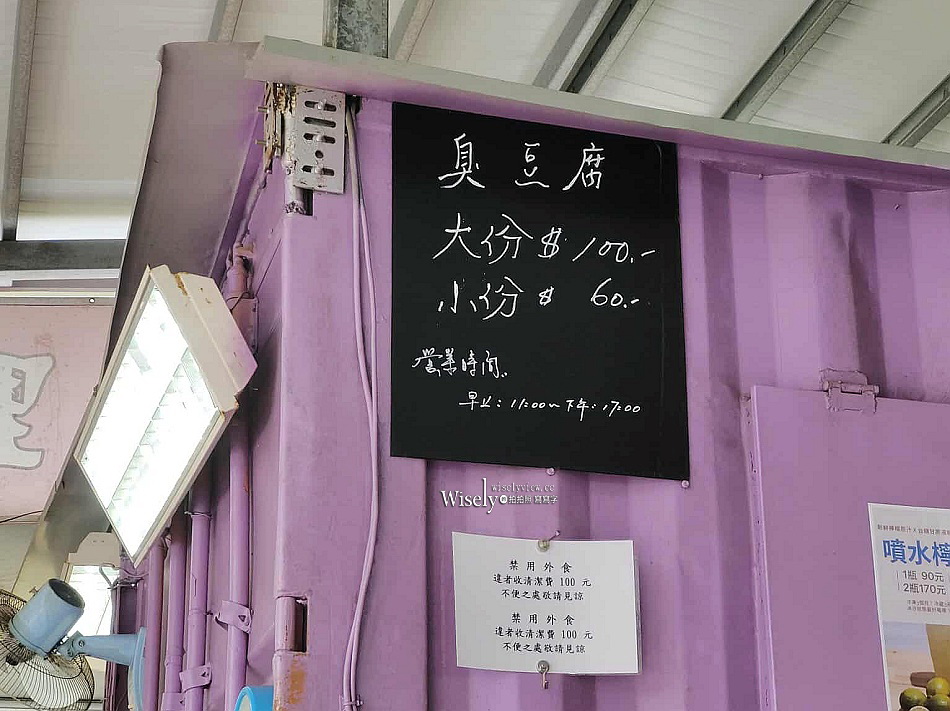 臭豆腐
大份 $ 100.-
小份 $ 60.-
營業時間:
早上:11:00~下午:17:00
wiselyview.cc
Wisely 拍拍照寫寫字
禁用外食
違者收清潔費 100 元
不便之處敬請見諒
禁用外食
違者收清潔費 100 元
不便之處敬請見諒
噴水檸
1瓶 90元
2瓶170元